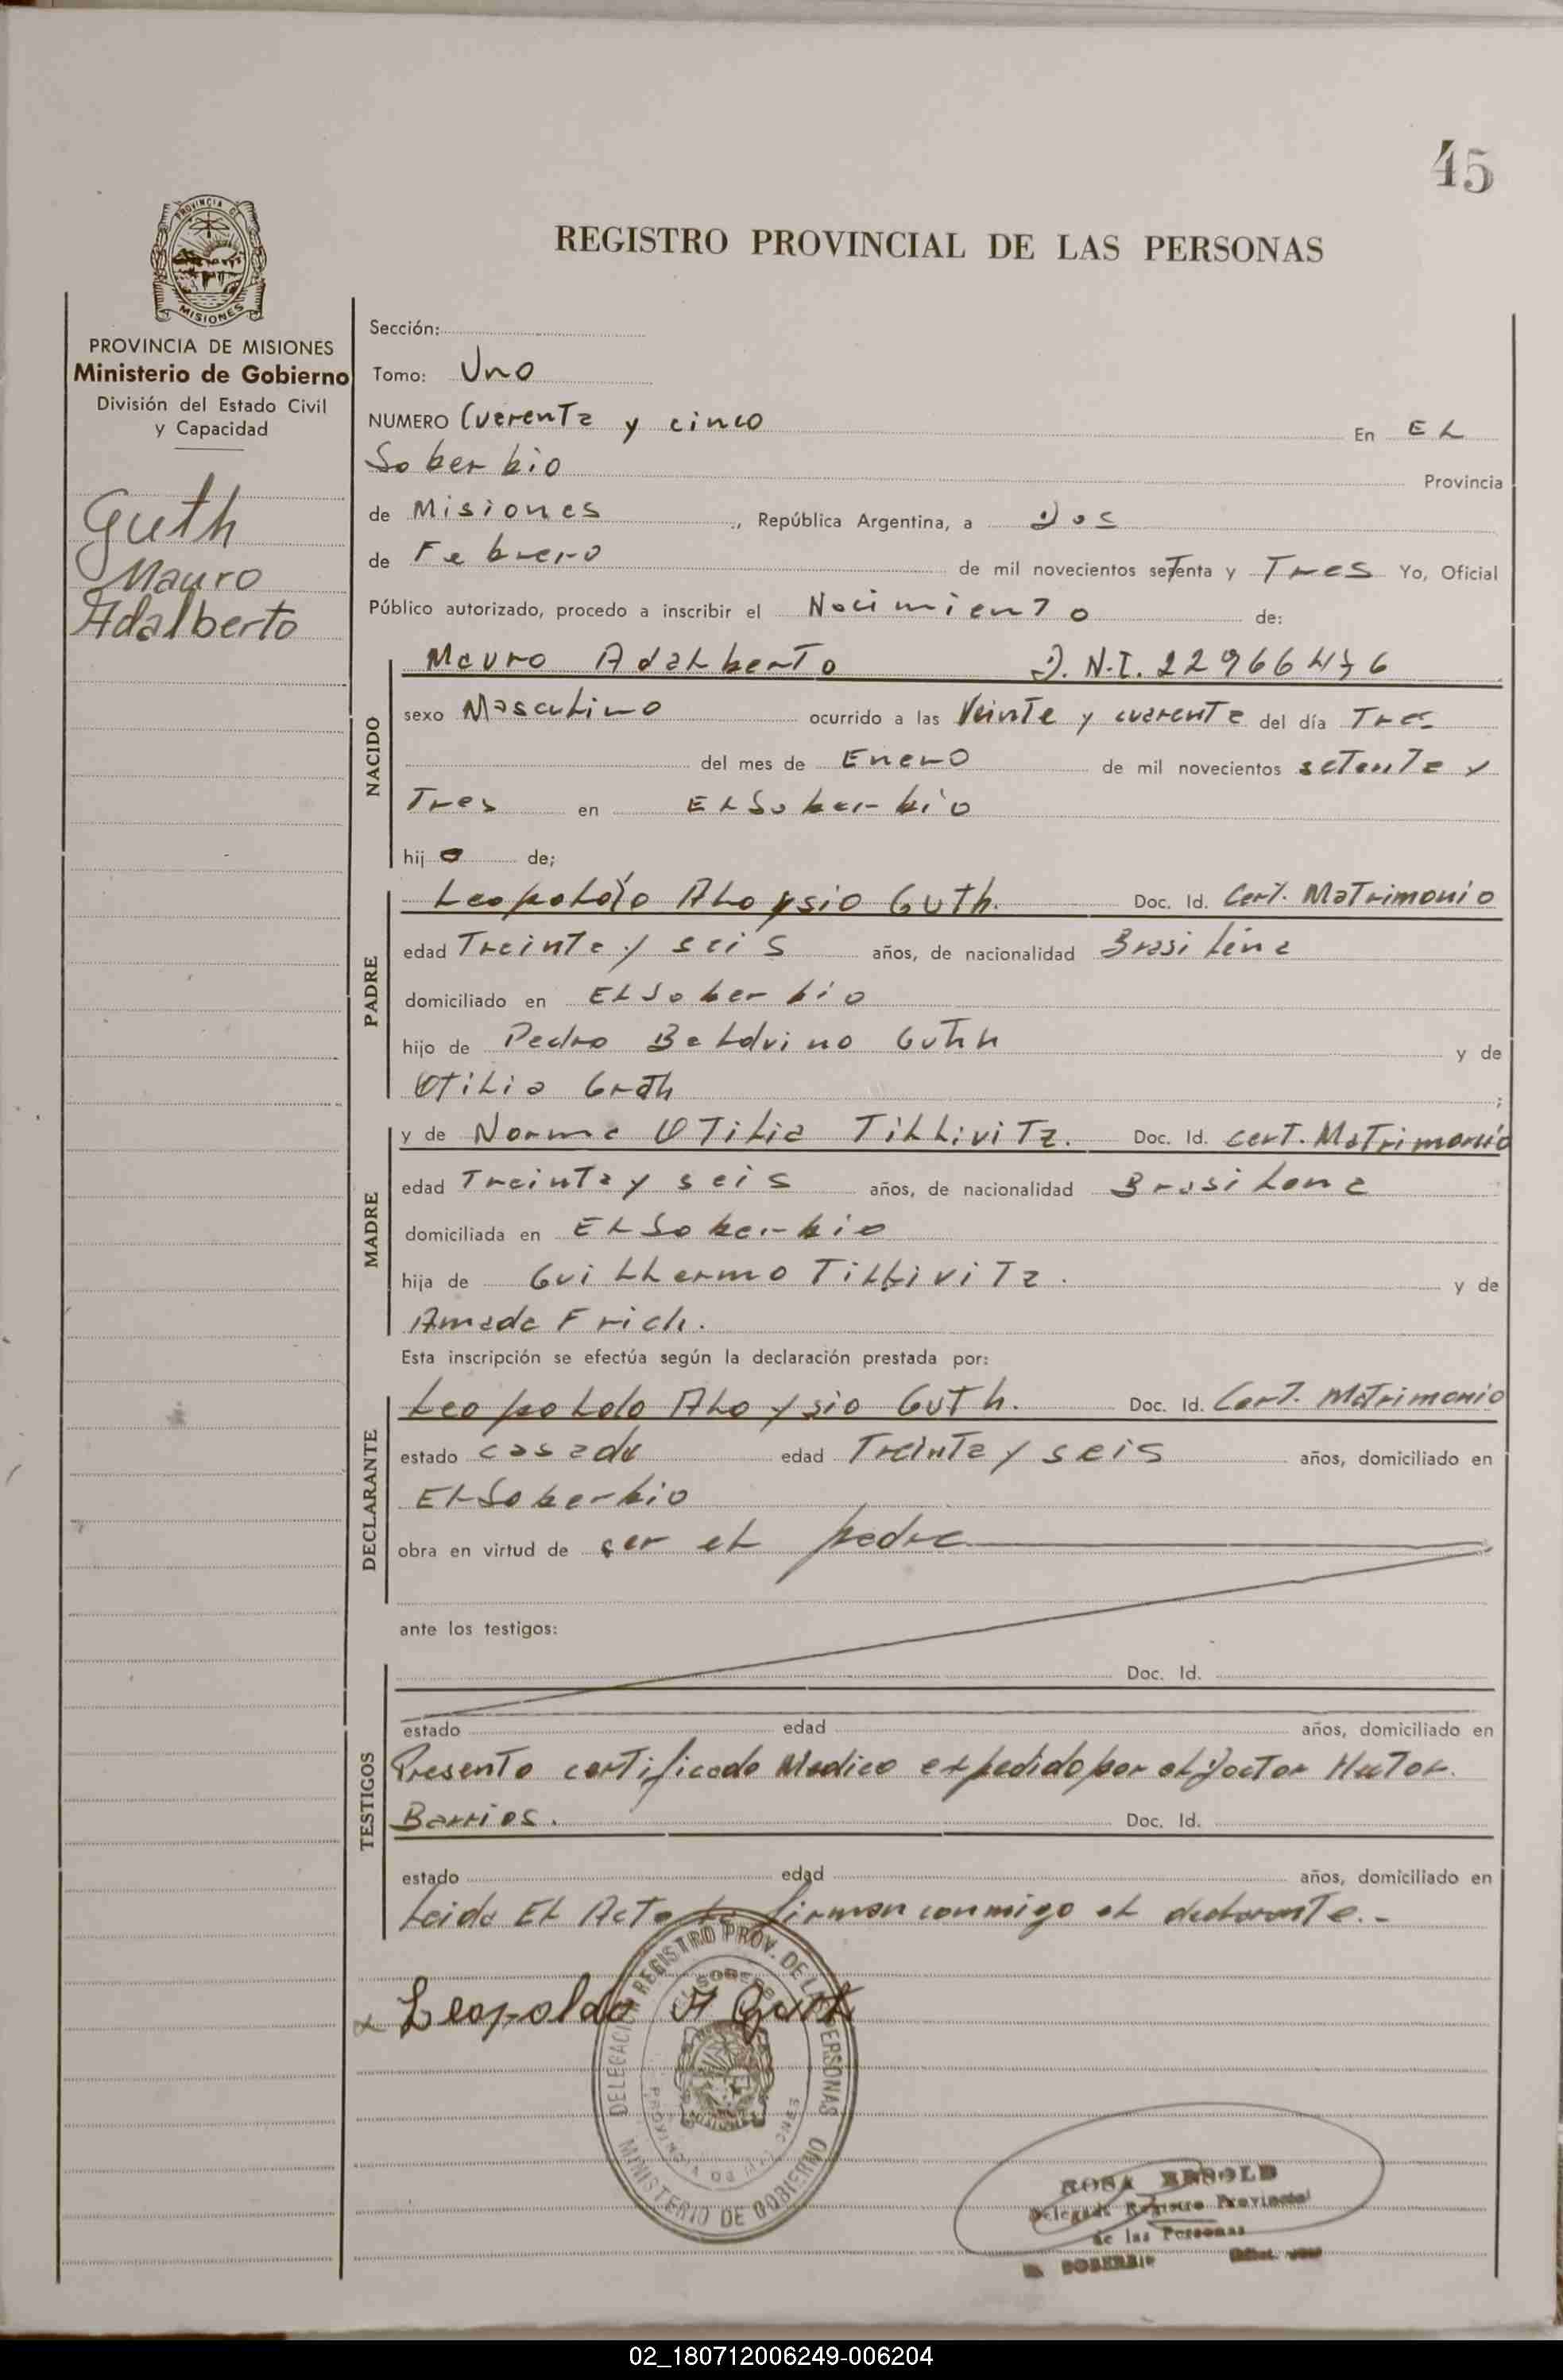 45
REGISTRO PROVINCIAL DE LAS PERSONAS
PROVINCIA DE MISIONES
Ministerio de Gobierno
División del Estado Civil
y Capacidad
Guth
Mauro
Adalberto
Sección:
Tomo: Uno
NUMERO Cuarenta y cinco En EL
Soberbio Provincia
de Misiones, República Argentina, a Dos
de Febrero de mil novecientos setenta y Tres Yo, Oficial
Público autorizado, procedo a inscribir el Nacimiento de:
NACIDO
Mauro Adalberto D.N.I. 22966476
sexo Masculino ocurrido a las Veinte y cuarenta del día Tres
del mes de Enero de mil novecientos setenta y
Tres en El Soberbio
hijo de;
PADRE
Leopoldo Aloysio Guth. Doc. Id. Cert. Matrimonio
edad Treinta y seis años, de nacionalidad Brasilena
domiciliado en El Soberbio
hijo de Pedro Baldvino Guth y de
Otilia Grath;
MADRE
y de Norma Otilia Tillivitz. Doc. Id. cert. Matrimonio
edad Treinta y seis años, de nacionalidad Brasilena
domiciliada en El Soberbio
hija de Guillermo Tillivitz. y de
Amada Frich.
Esta inscripción se efectúa según la declaración prestada por:
DECLARANTE
Leopoldo Aloysio Guth. Doc. Id. Cert. Matrimonio
estado casado edad Treinta y seis años, domiciliado en
El Soberbio
obra en virtud de ser el padre
ante los testigos:
TESTIGOS
Doc. Id.
estado edad años, domiciliado en
Presento certificado Medico expedido por el Doctor Hector
Barrios. Doc. Id.
estado edad años, domiciliado en
Leida El Acta la firman conmigo el declarante.-
Leopoldo A Guth
DELEGACION REGISTRO PROV. DE LAS PERSONAS
EL SOBERBIO
PROVINCIA DE MISIONES
MINISTERIO DE GOBIERNO
ROSA
Delegada Registro Provincial
de las Personas
EL SOBERBIO
02_180712006249-006204